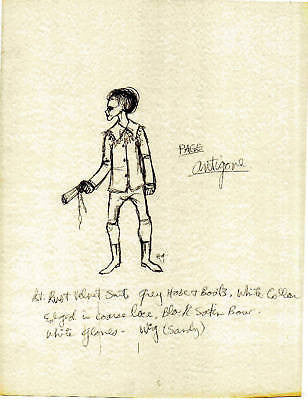 PAGE
Antigone
Lt. Rust Velvet Suit, Grey Hose & Boots, White Collar
Edged in coarse lace, Black Satin Bow.
White gloves - Wig (Sandy)